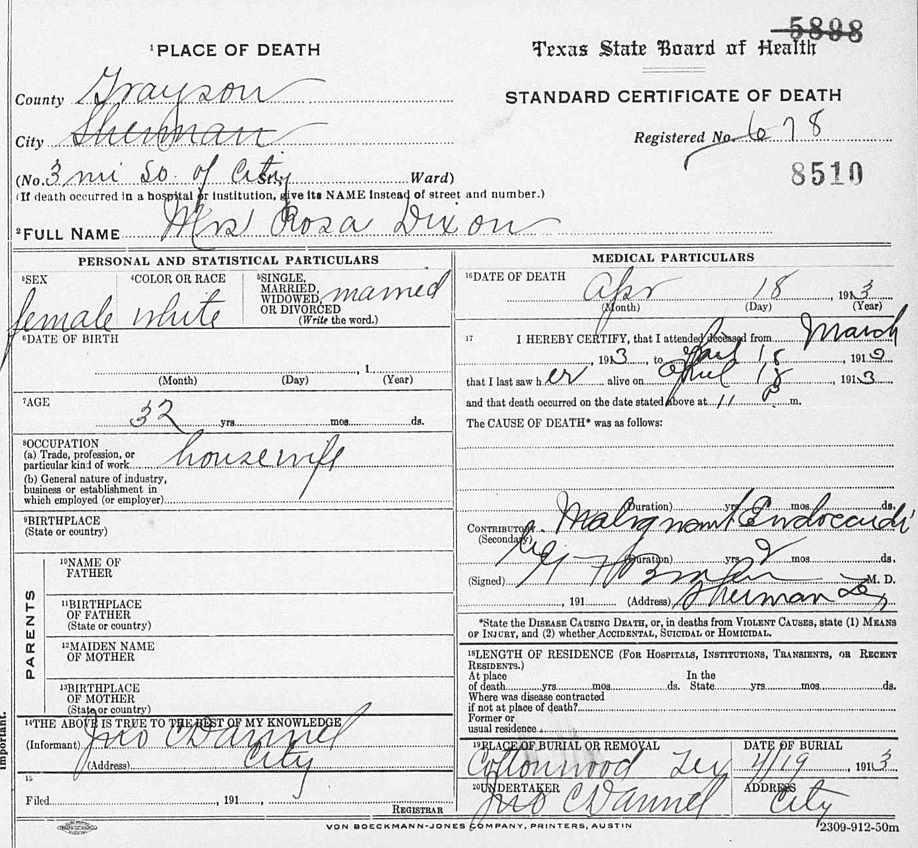 5898
¹PLACE OF DEATH
Texas State Board of Health
County Grayson
STANDARD CERTIFICATE OF DEATH
City Sherman
Registered No. 678
(No. 3 mi So. of City St.; Ward)
8510
(If death occurred in a hospital or institution, give its NAME instead of street and number.)
²FULL NAME Mrs Rosa Dixon
PERSONAL AND STATISTICAL PARTICULARS
³SEX
female
⁴COLOR OR RACE
white
⁵SINGLE,
MARRIED,
WIDOWED,
OR DIVORCED
(Write the word.)
married
⁶DATE OF BIRTH
, 1
(Month) (Day) (Year)
⁷AGE
32 yrs. mos. ds.
⁸OCCUPATION
(a) Trade, profession, or
particular kind of work housewife
(b) General nature of industry,
business or establishment in
which employed (or employer)
⁹BIRTHPLACE
(State or country)
PARENTS
¹⁰NAME OF
FATHER
¹¹BIRTHPLACE
OF FATHER
(State or country)
¹²MAIDEN NAME
OF MOTHER
¹³BIRTHPLACE
OF MOTHER
(State or country)
¹⁴THE ABOVE IS TRUE TO THE BEST OF MY KNOWLEDGE
(Informant) Jno C Dannel
(Address) City
important.
15
Filed , 191
REGISTRAR
MEDICAL PARTICULARS
¹⁶DATE OF DEATH
Apr 18, 1913
(Month) (Day) (Year)
17 I HEREBY CERTIFY, that I attended deceased from March
, 1913 to 18, 191
that I last saw her alive on April 18, 1913
and that death occurred on the date stated above at 11 P m.
The CAUSE OF DEATH* was as follows:
(Duration) yrs. mos. ds.
CONTRIBUTORY Malignant Endocardi
(Secondary)
(Duration) yrs 2 mos ds.
(Signed) M. D.
, 191 (Address) Sherman Tex
*State the DISEASE CAUSING DEATH, or, in deaths from VIOLENT CAUSES, state (1) MEANS
OF INJURY, and (2) whether ACCIDENTAL, SUICIDAL or HOMICIDAL.
¹⁸LENGTH OF RESIDENCE (FOR HOSPITALS, INSTITUTIONS, TRANSIENTS, OR RECENT
RESIDENTS.)
At place In the
of death yrs. mos. ds. State yrs. mos. ds.
Where was disease contracted
if not at place of death?
Former or
usual residence
¹⁹PLACE OF BURIAL OR REMOVAL
Cottonwood Tex
DATE OF BURIAL
4/19, 1913
²⁰UNDERTAKER
Jno C Dannel
ADDRESS
City
VON BOECKMANN-JONES COMPANY, PRINTERS, AUSTIN
2309-912-50m